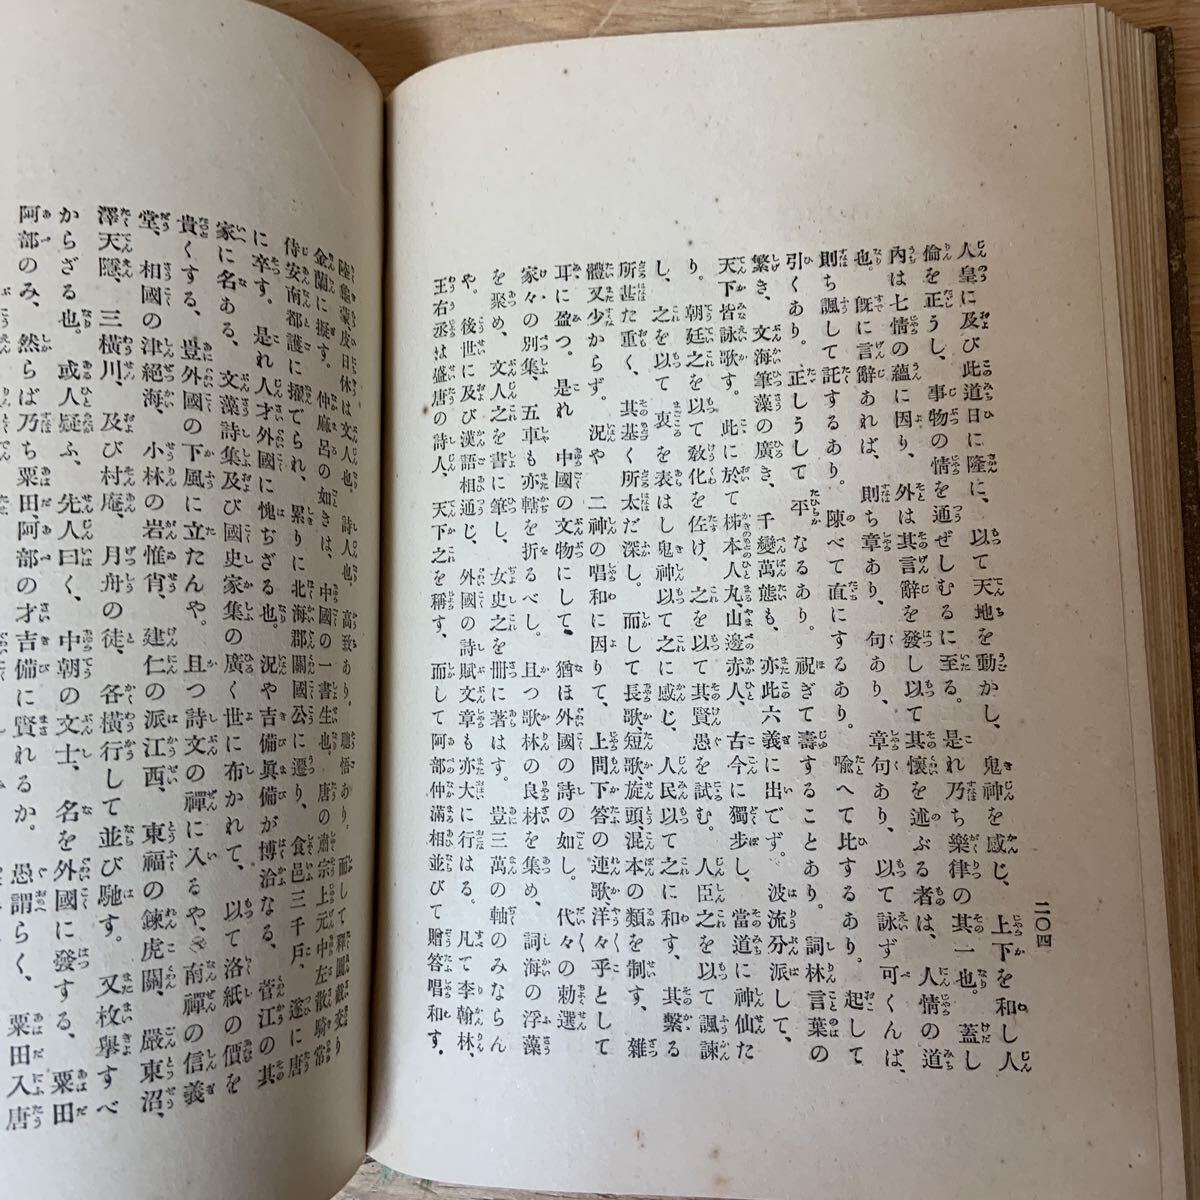 二〇四
人皇に及び此道日に隆に、以て天地を動かし、鬼神を感じ、上下を和し人
倫を正うし、事物の情を通ぜしむるに至る。是れ乃ち樂律の其一也。蓋し
內は七情の蘊に因り、外は其言辭を發し以て其懷を述ぶる者は、人情の道
也。旣に言辭あれば、則ち章あり、句あり、章句あり、以て詠ず可くんば、
則ち諷して託するあり。陳べて直にするあり。喩へて比するあり。起して
引くあり。正しうして平なるあり。祝ぎて壽することあり。詞林言葉の
繁き、文海筆藻の廣き、千變萬態も、亦此六義に出でず。波流分派して、
天下皆詠歌す。此に於て柿本人丸、山邊赤人、古今に獨步し、當道に神仙た
り。朝廷之を以て敎化を佐け、之を以て其賢愚を試む。人臣之を以て諷諫
し、之を以て衷を表はし鬼神以て之に感じ、人民以て之に和す、其繫る
所甚だ重く、其基く所太だ深し。而して長歌短歌旋頭、混本の類を制す、雜
體又少からず。況や二神の唱和に因りて、上問下答の連歌、洋々乎として
耳に盈つ。是れ中國の文物にして、猶ほ外國の詩の如し。代々の勅選
家々の別集、五車も亦轄を折るべし。且つ歌林の良材を集め、詞海の浮藻
を聚め、文人之を書に筆し、女史之を冊に著はす。豈三萬の軸のみならん
や。後世に及び漢語相通じ、外國の詩賦文章も亦大に行はる。凡て李翰林、
王右丞は盛唐の詩人、天下之を稱す、而して阿部仲滿相並びて贈答唱和す。
陸龜蒙皮日休は文人也、詩人也、高致あり、聰悟あり。而して釋圓載交り
金蘭に擬す。仲麻呂の如きは、中國の一書生也。唐の肅宗上元中左散騎常
侍安南都護に擢でられ、累りに北海郡開國公に遷り、食邑三千戶、遂に唐
に卒す。是れ人才外國に愧ぢざる也。況や吉備眞備が博洽なる、菅江の其
家に名ある、文藻詩集及び國史家集の廣く世に布かれて、以て洛紙の價を
貴くする、豈外國の下風に立たんや。且つ詩文の禪に入るや、南禪の信義
堂、相國の津絕海、小林の岩惟肖、建仁の派江西、東福の鍊虎關、嚴東沼、
澤天隱、三橫川、及び村庵、月舟の徒、各橫行して並び馳す。又枚擧すべ
からざる也。或人疑ふ、先人曰く、中朝の文士、名を外國に發する、粟田
阿部のみ、然らば乃ち粟田、阿部の才吉備に賢れるか。愚謂らく、粟田入唐